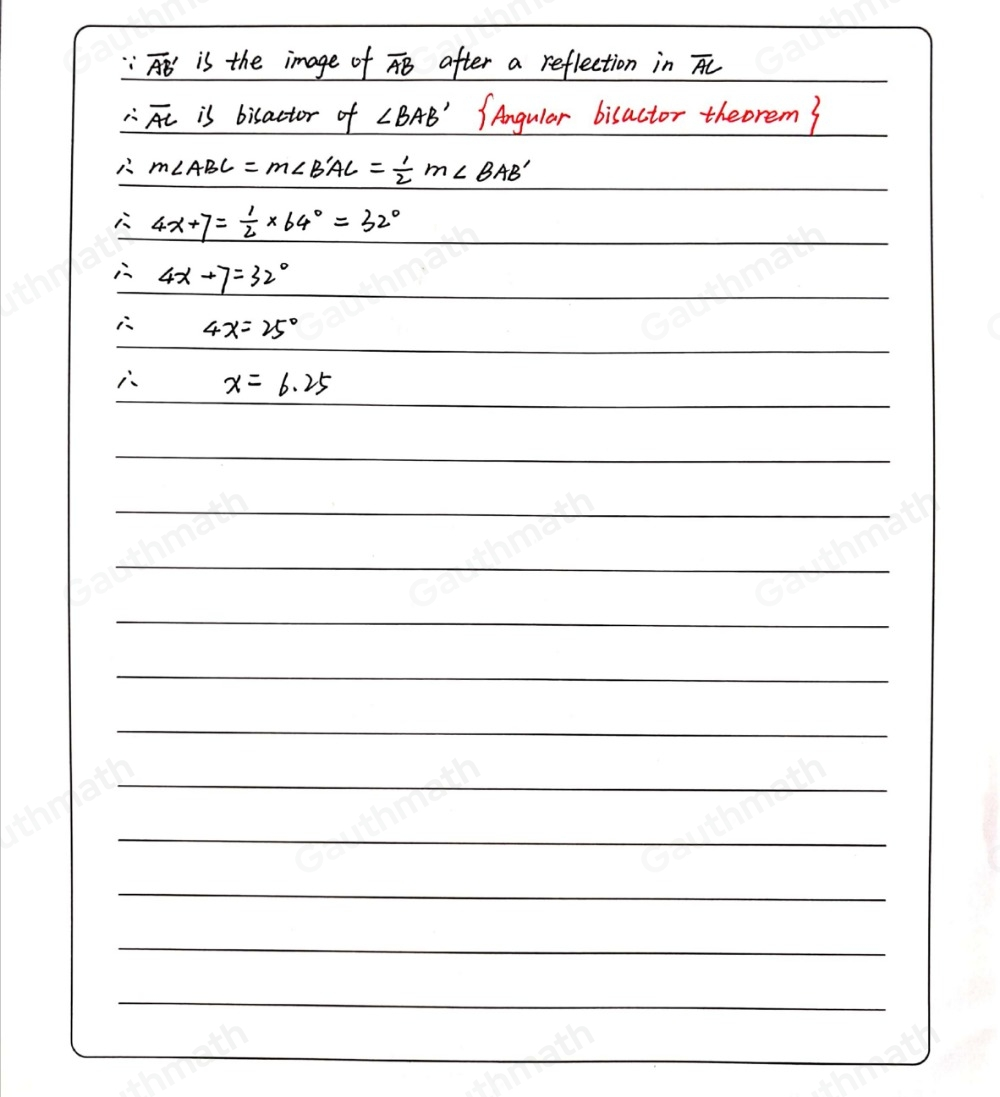 ∵ A̅B̅'̅ is the image of A̅B̅ after a reflection in A̅C̅
∴ A̅C̅ is bisactor of ∠BAB' {Angular bisactor theorem}
∴ m∠ABC = m∠B'AC = 1/2 m∠BAB'
∴ 4x+7 = 1/2 × 64° = 32°
∴ 4x+7=32°
∴ 4x=25°
∴ x= 6.25